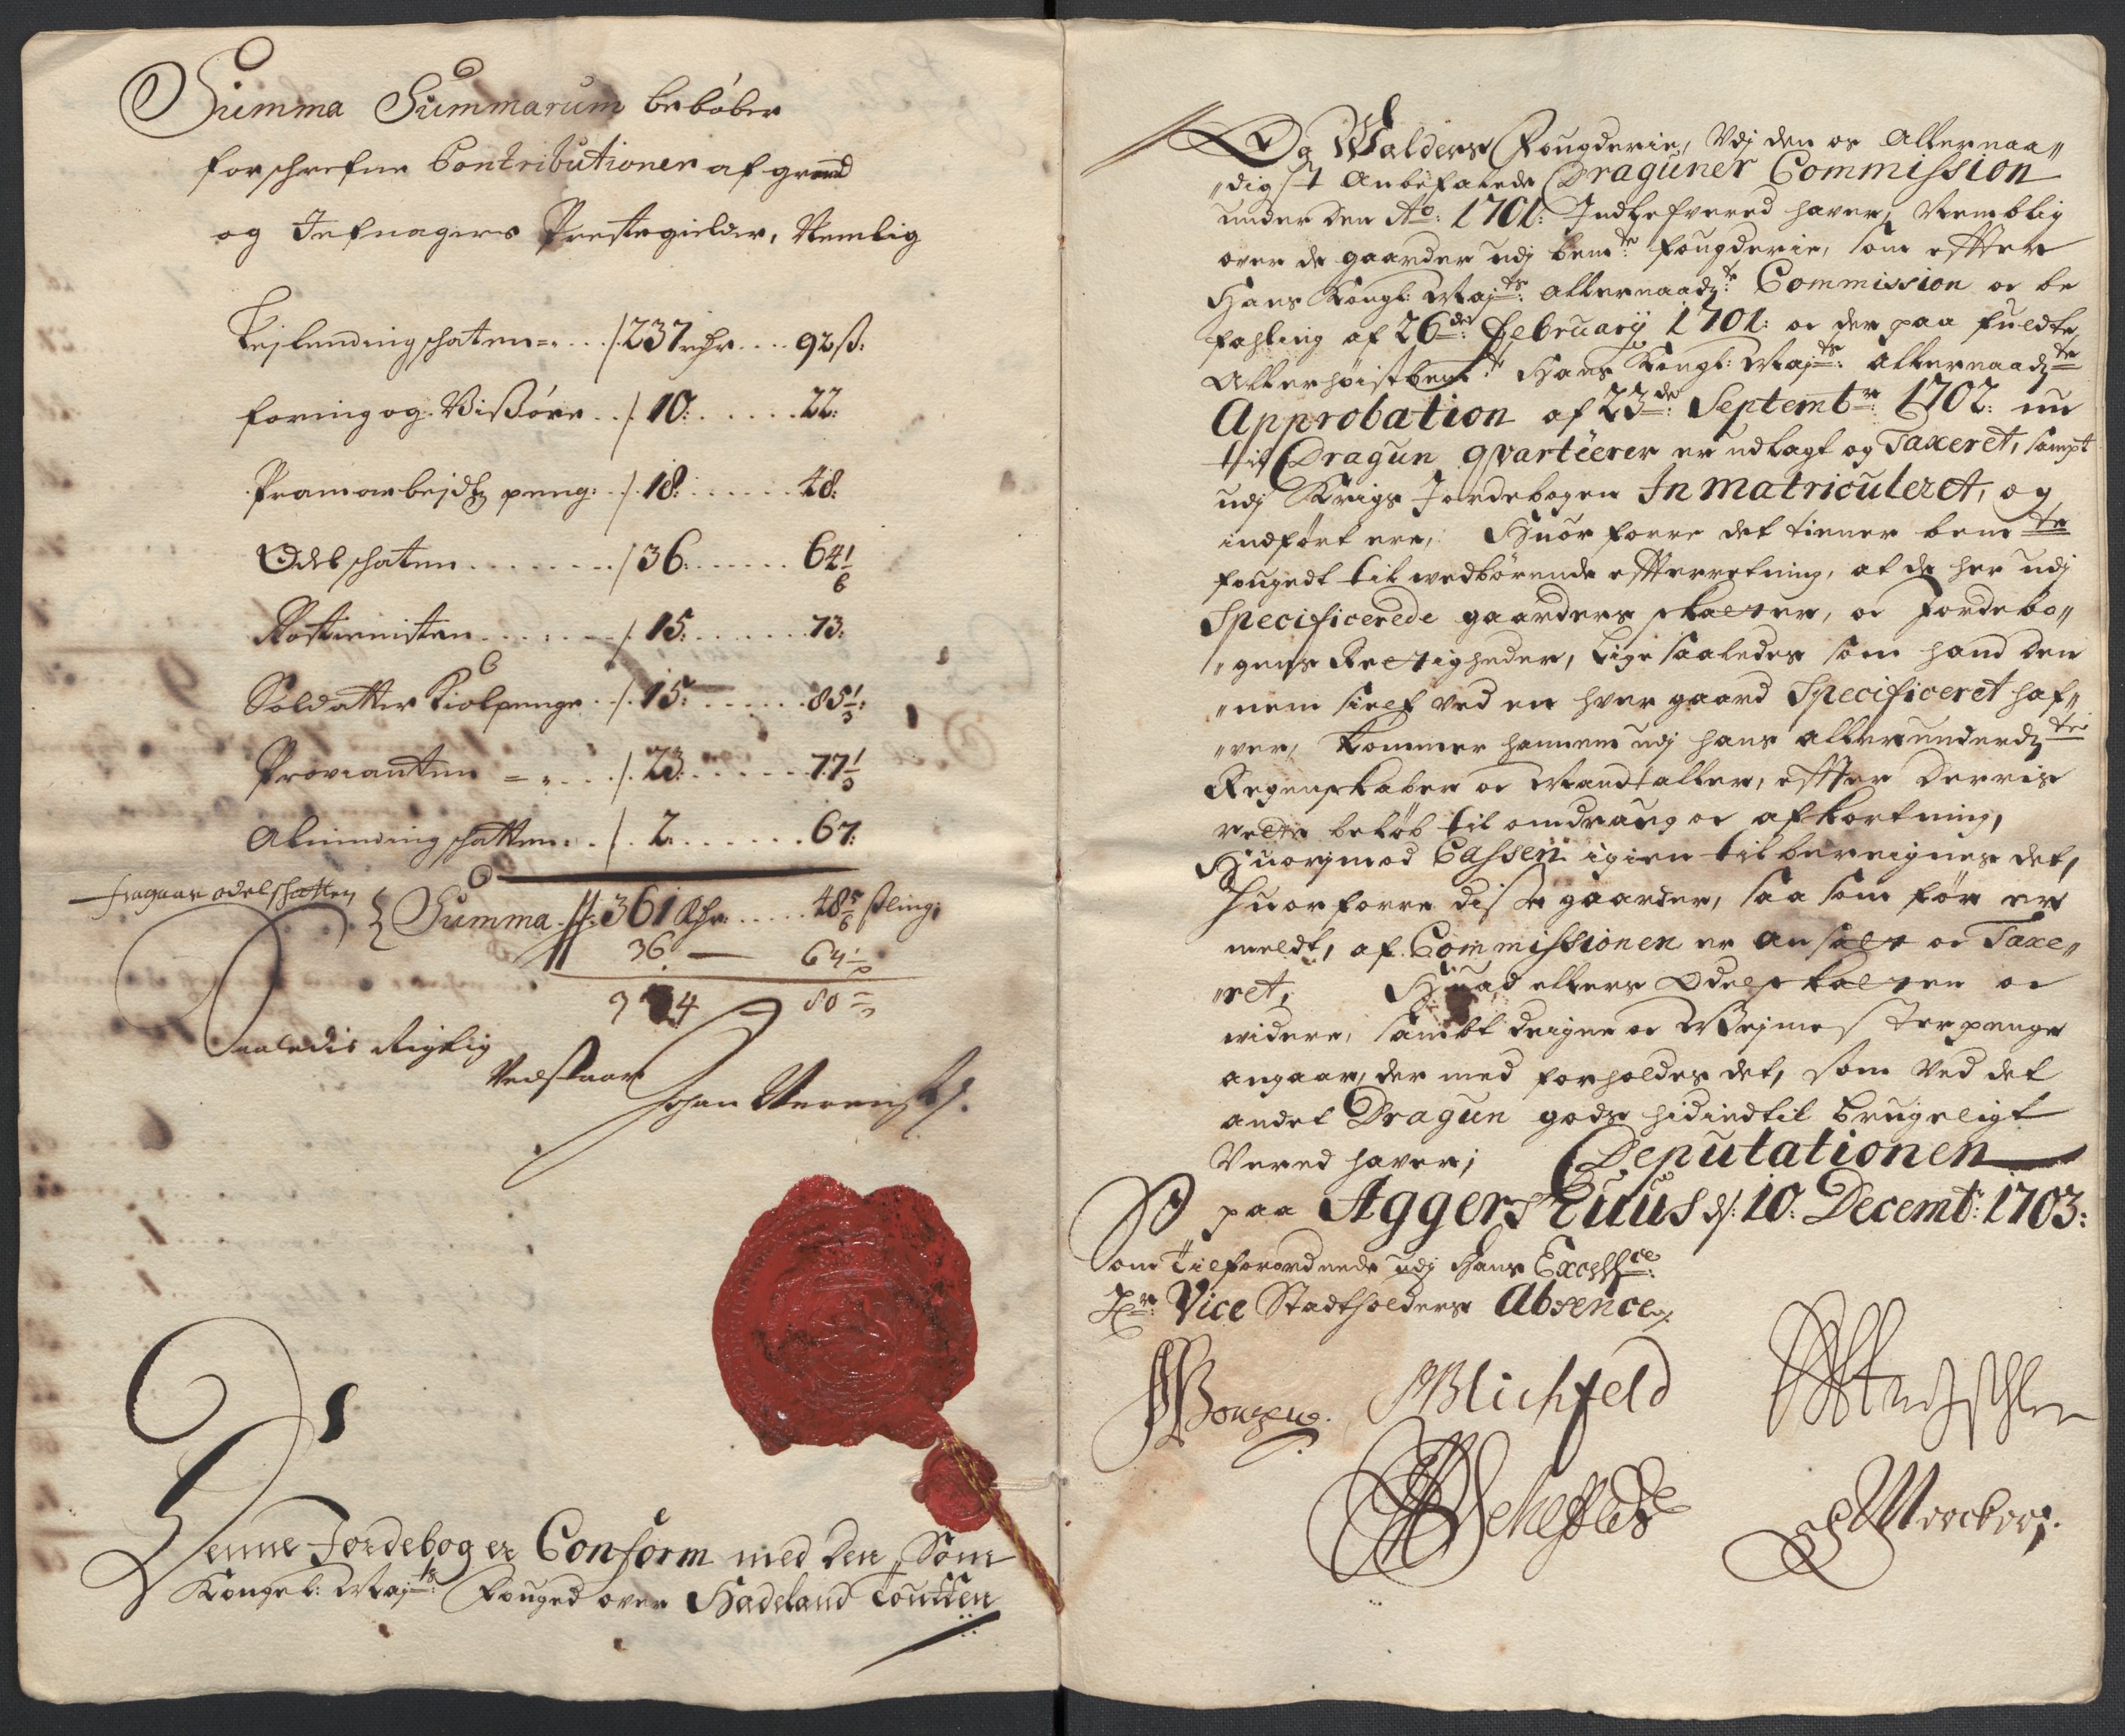 Summa Summarum beløber
forschrefne Contributioner af grand
og Jefnagers Præstegielder, Nemlig
Lejlendingschaten=. . . /. 237 rdr . . . 92 ß:
foring og Vißøre . . /. 10: . . . . . 22:
Pramarbejdtz peng: . /. 18: . . . . . 48:
Odelschaten . . . . . . . . /. 36: . . . . . 64 1/6
Rostienisten . . . . . . . /. 15: . . . . . 73:
Soldatter Kiolpenge . . /. 15: . . . . . 85 1/3:
Provianten = . . . . /. 23: . . . . . 77 1/3
Alminding schatten: . /. 2. . . . . . 67:
fragaar odelschatten
Summa //: 361 Rdr: . . . . 48 5/6 schling:
36. — 64 1/6
80
Saaledis Rigtig
Vedstaar
Johan
Denne Jordebog er Conform med den, Som
Kongel: Maj:ts Fouged over Hadeland Toutten
Og Walders Fougderie, Udj den os Allernaa„
„digst Anbefalede Draguner Commission
under den Ao: 1701: Indlefvered haver, Nemblig
over de gaarder udj bem:te fougderie, som efter
Hans Kongl: Maj:ts: allernaad:te Commission oc be
fahling af 26:de February 1701: oc der paa fuldte
Allerhøistbem:te Hans Kongl: Maj:ts: allernaad:te
Approbation af 23:de Septembr: 1702: nu
til Dragun qvarteerer er udlagt og Taxeret, sampt
udj Krigs Jordebogen Inmatriculeret, og
indført ere, Huor forre det tiener bem:te
fougedt til vedbørende efterretning, at de her udj
Specificerede gaarders skatter, oc Jordebo„
„gens Rettigheder, lige saaledes som hand den
„nem sielf ved en hver gaard Specificeret haf„
„ver, kommer hannem udj hans allerunderd:te
Regenskaber oc Mandtaller, efter derris
rette beløb til omdrag oc afkortning,
Huorimod Cassen igien tilbereignes det,
Huorforre disse gaarder, saa som før er
meldt, af Commissionen er ansatt oc Taxe„
„ret, Huad ellers Odelskatten oc
videre, sambt leigne oc Vejmester penge
angaar, der med forholdes det, som ved det
andet Dragun gods hidindtil brugeligt
Vered haver; Deputationen
paa Aggershuus d: 10: Decembr: 1703:
Som Tilforordnede udj Hans Excell:ce
Hr: Vice Stadtholders Absence
MBlichfeld